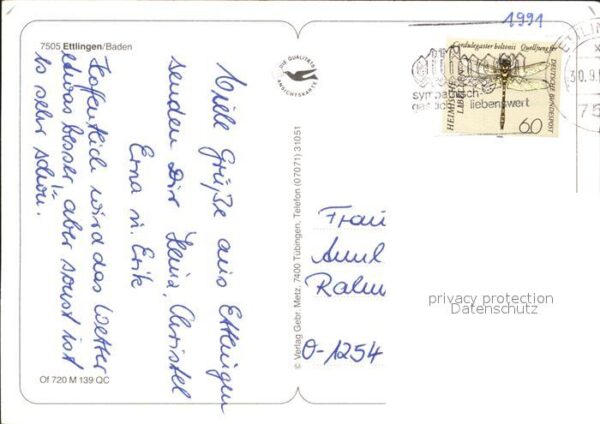 1991
7505 Ettlingen/Baden
Viele Grüße aus Ettlingen
senden Dir Lena, Christel
Erna u. Erik
Hoffentlich wird das Wetter
etwas besser, aber sonst ist
es sehr schön.
Of 720 M 139 QC
DIE QUALITÄTS
ANSICHTSKARTE
© Verlag Gebr. Metz, 7400 Tübingen, Telefon (07071) 31051
Cordulegaster beltonii Quelljungfer
HEIMISCHE
LIBELLEN
DEUTSCHE BUNDESPOST
60
sympathisch
liebenswert
30.9.
75
Frau
O-1254
privacy protection
Datenschutz